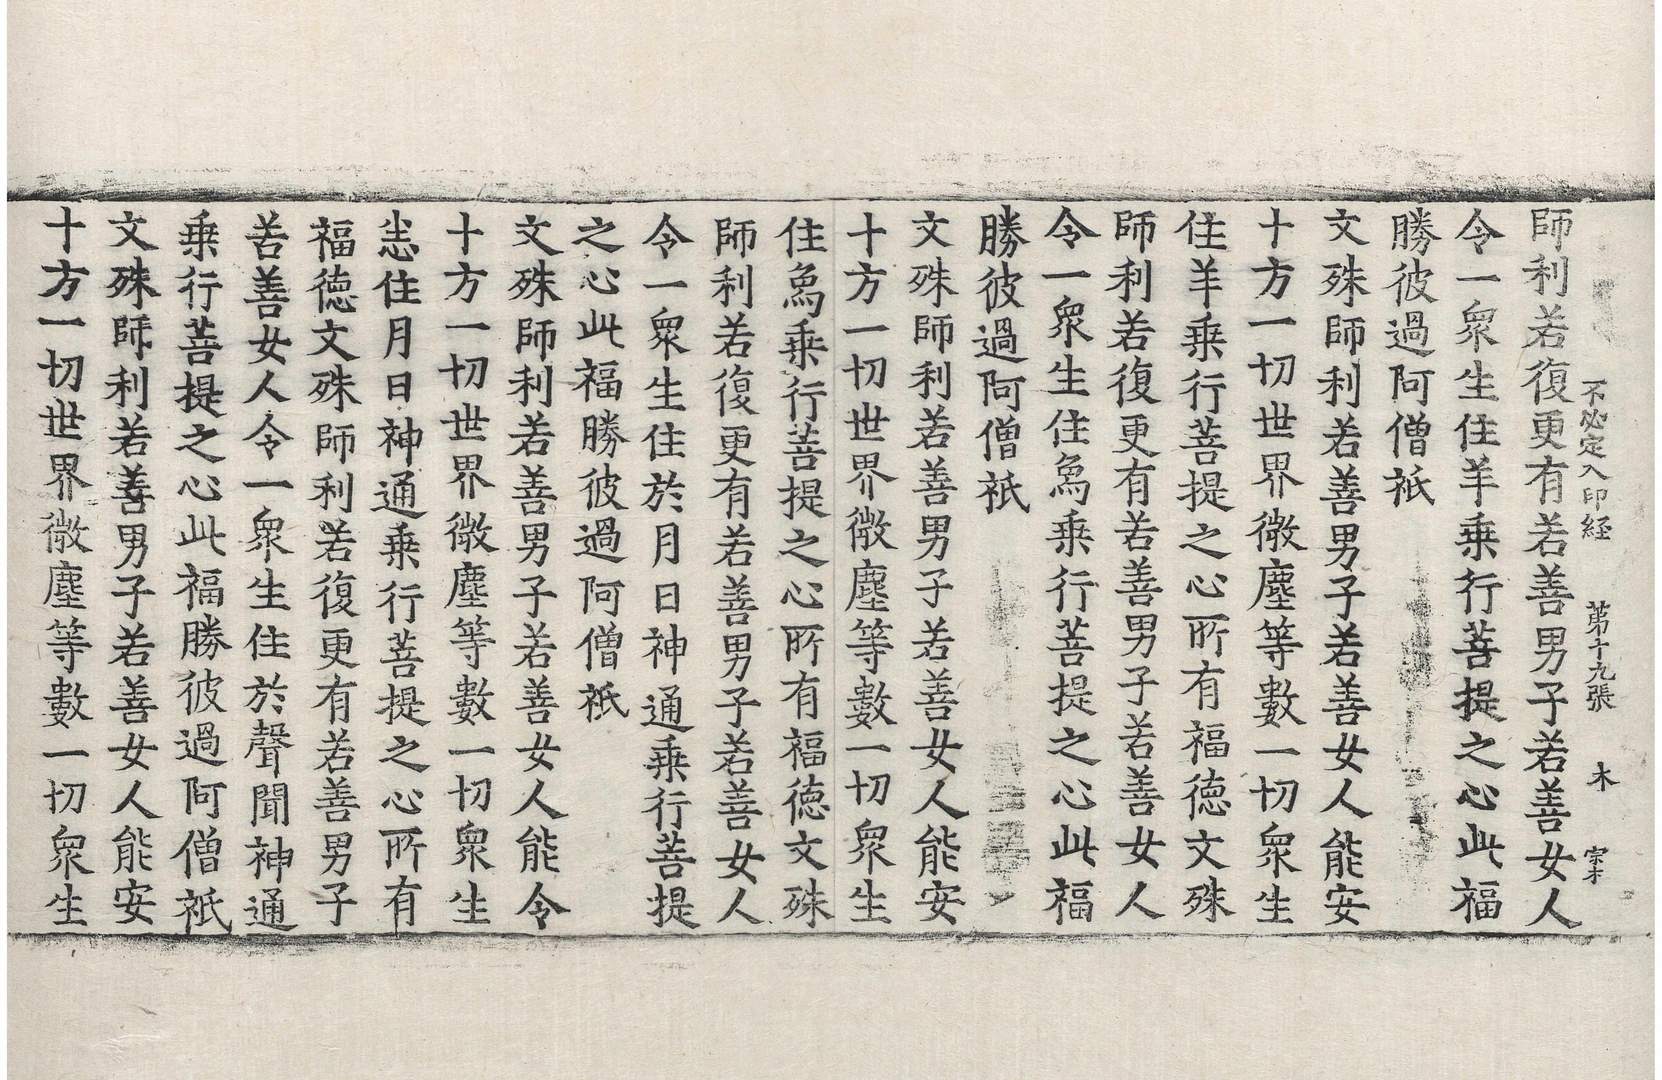 不必定入印経 第十九張 木
師利若復更有若善男子若善女人
令一衆生住羊乗行菩提之心此福
勝彼過阿僧祇
文殊師利若善男子若善女人能安
十方一切世界微塵等數一切衆生
住羊乗行菩提之心所有福徳文殊
師利若復更有若善男子若善女人
令一衆生住象乗行菩提之心此福
勝彼過阿僧祇
文殊師利若善男子若善女人能安
十方一切世界微塵等數一切衆生
住象乗行菩提之心所有福徳文殊
師利若復更有若善男子若善女人
令一衆生住於月日神通乗行菩提
之心此福勝彼過阿僧祇
文殊師利若善男子若善女人能令
十方一切世界微塵等數一切衆生
悉住月日神通乗行菩提之心所有
福徳文殊師利若復更有若善男子
若善女人令一衆生住於聲聞神通
乗行菩提之心此福勝彼過阿僧祇
文殊師利若善男子若善女人能安
十方一切世界微塵等數一切衆生